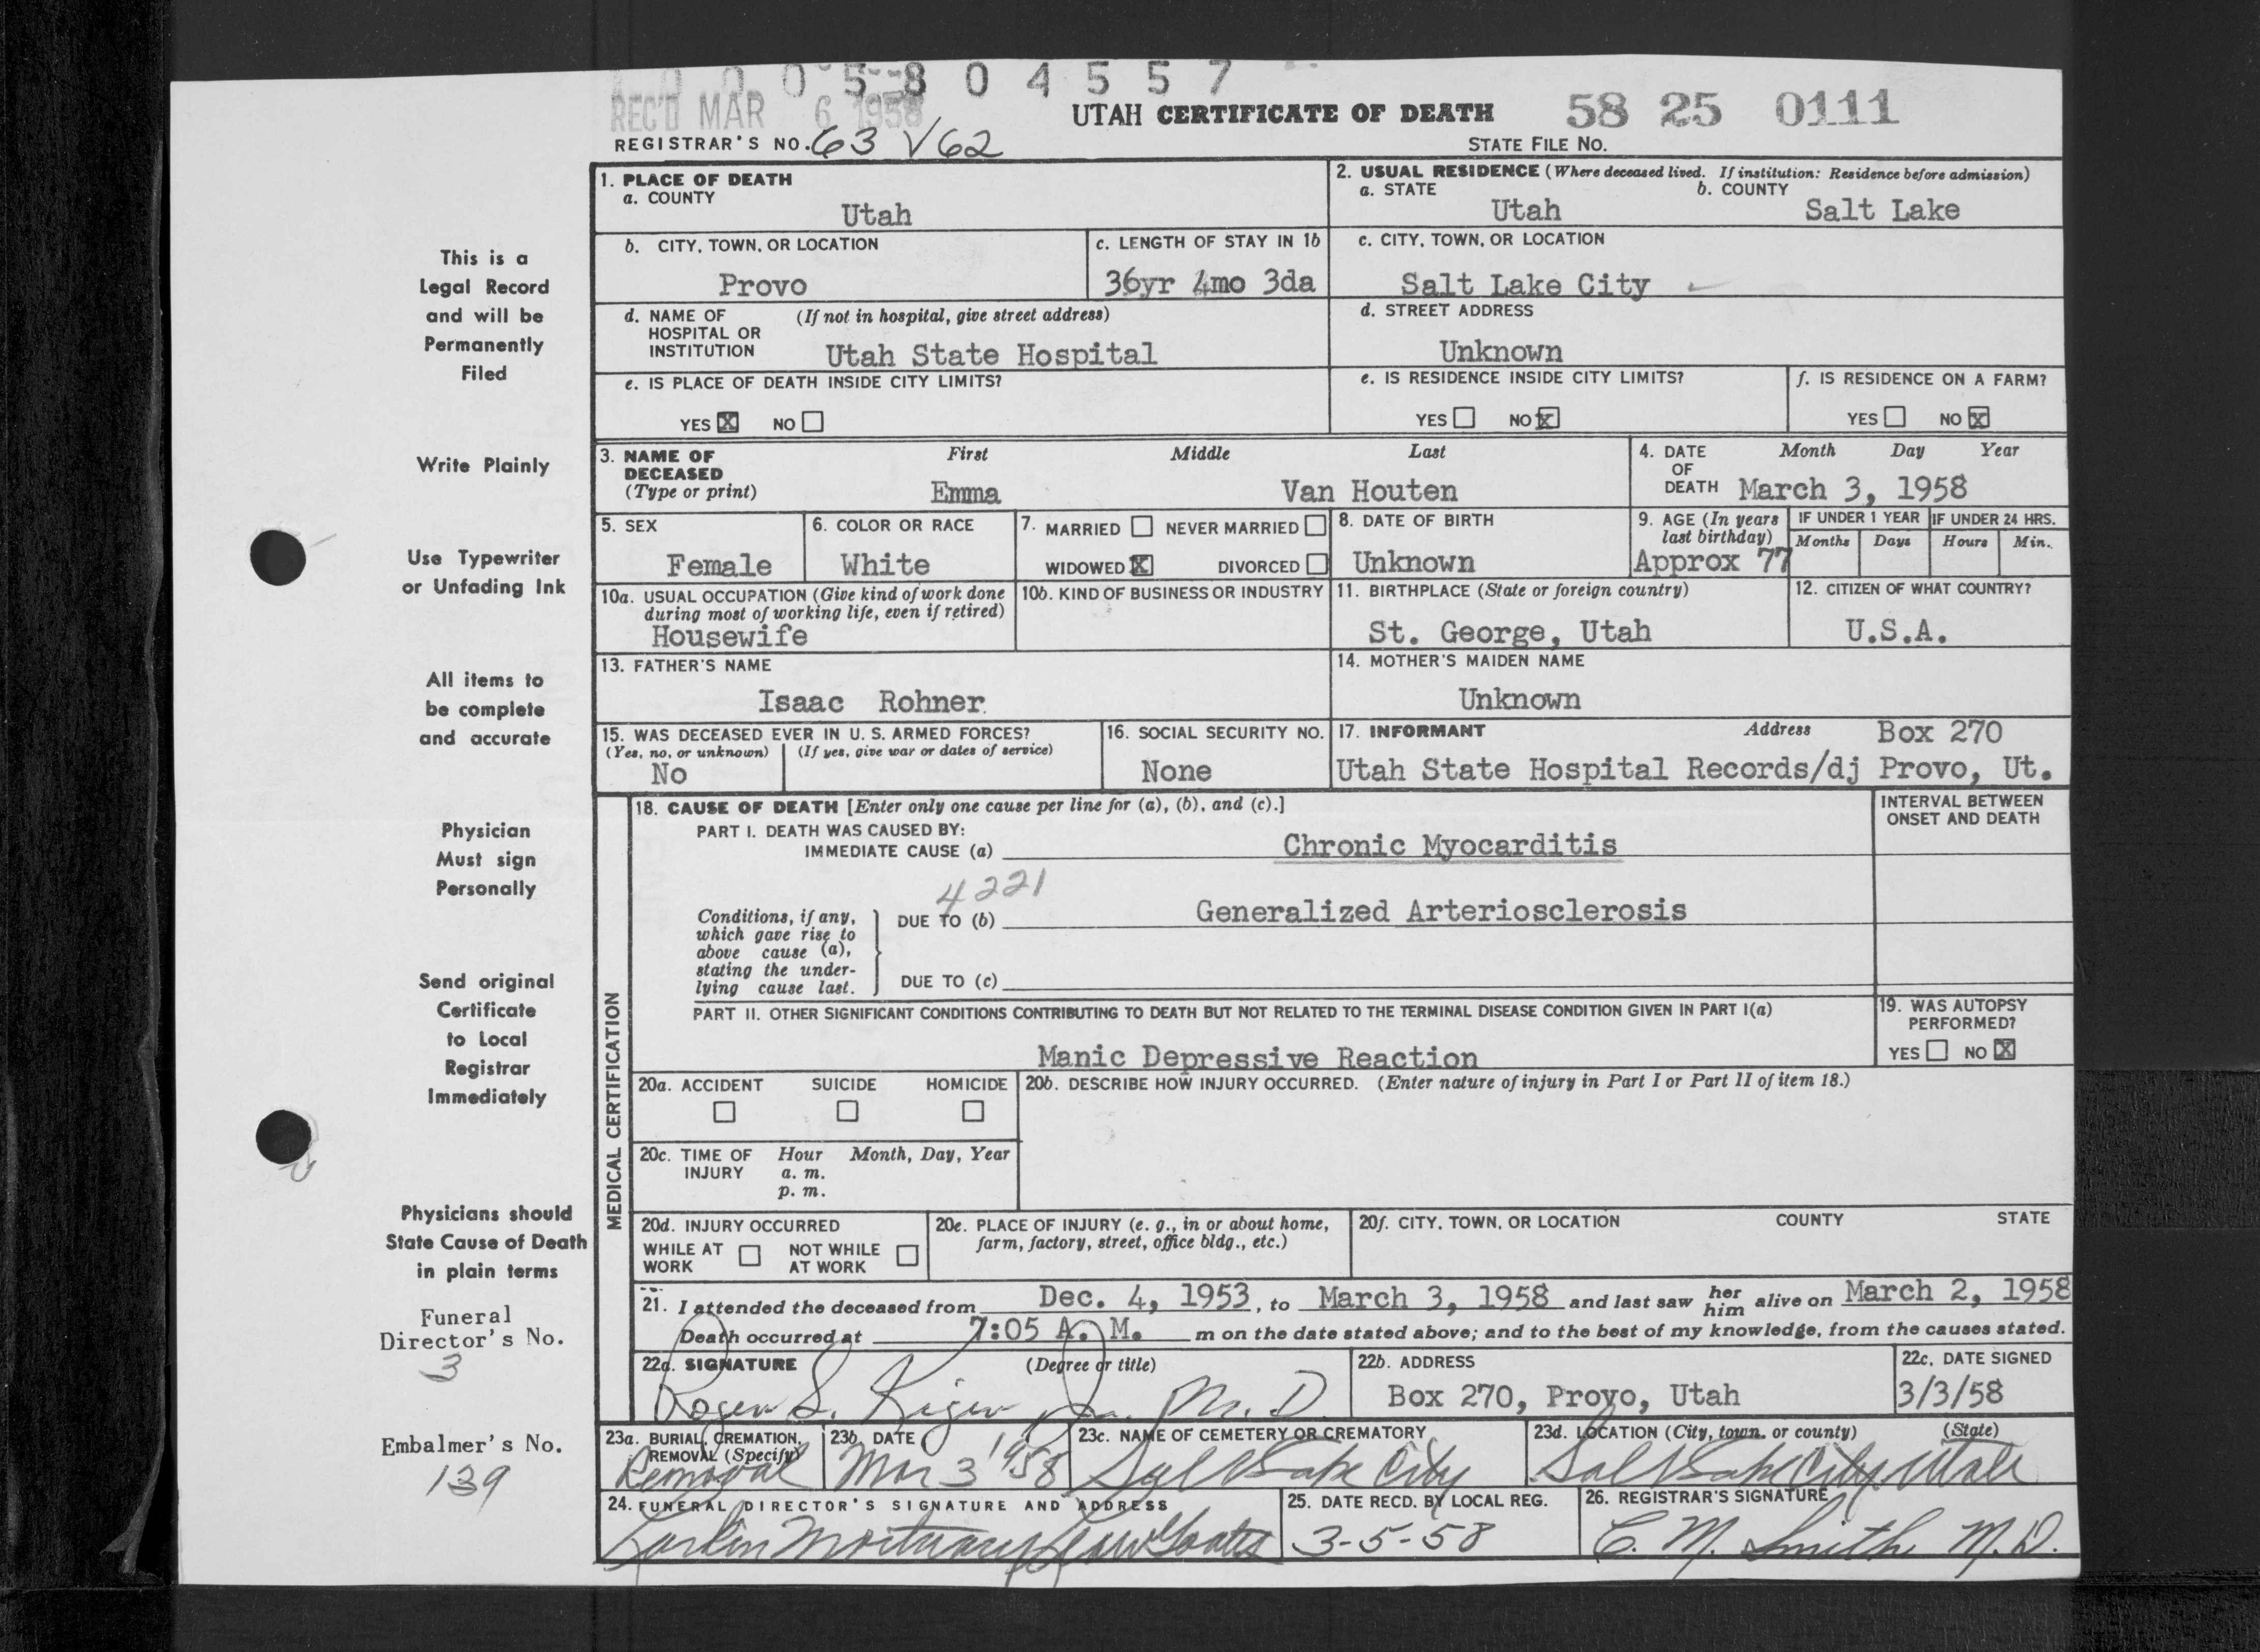 0 5 8 0 4 5 5 7
REC'D MAR 6 1958
UTAH CERTIFICATE OF DEATH
58 25 0111
REGISTRAR'S NO. 63 √62
STATE FILE NO.
1. PLACE OF DEATH
a. COUNTY
Utah
2. USUAL RESIDENCE (Where deceased lived. If institution: Residence before admission)
a. STATE
Utah
b. COUNTY
Salt Lake
b. CITY, TOWN, OR LOCATION
Provo
c. LENGTH OF STAY IN 1b
36yr 4mo 3da
c. CITY, TOWN, OR LOCATION
Salt Lake City
d. NAME OF HOSPITAL OR INSTITUTION (If not in hospital, give street address)
Utah State Hospital
d. STREET ADDRESS
Unknown
e. IS PLACE OF DEATH INSIDE CITY LIMITS?
YES X NO
e. IS RESIDENCE INSIDE CITY LIMITS?
YES NO X
f. IS RESIDENCE ON A FARM?
YES NO X
3. NAME OF DECEASED (Type or print)
First Middle Last
Emma Van Houten
4. DATE OF DEATH
Month Day Year
March 3, 1958
5. SEX
Female
6. COLOR OR RACE
White
7. MARRIED NEVER MARRIED
WIDOWED X DIVORCED
8. DATE OF BIRTH
Unknown
9. AGE (In years last birthday)
Approx 77
IF UNDER 1 YEAR
Months Days
IF UNDER 24 HRS.
Hours Min.
10a. USUAL OCCUPATION (Give kind of work done during most of working life, even if retired)
Housewife
10b. KIND OF BUSINESS OR INDUSTRY
11. BIRTHPLACE (State or foreign country)
St. George, Utah
12. CITIZEN OF WHAT COUNTRY?
U.S.A.
13. FATHER'S NAME
Isaac Rohner
14. MOTHER'S MAIDEN NAME
Unknown
15. WAS DECEASED EVER IN U. S. ARMED FORCES?
(Yes, no, or unknown) (If yes, give war or dates of service)
No
16. SOCIAL SECURITY NO.
None
17. INFORMANT Address Box 270
Utah State Hospital Records/dj Provo, Ut.
MEDICAL CERTIFICATION
18. CAUSE OF DEATH [Enter only one cause per line for (a), (b), and (c).]
INTERVAL BETWEEN ONSET AND DEATH
PART I. DEATH WAS CAUSED BY:
IMMEDIATE CAUSE (a) Chronic Myocarditis
4221
Conditions, if any, which gave rise to above cause (a), stating the underlying cause last.
DUE TO (b) Generalized Arteriosclerosis
DUE TO (c)
PART II. OTHER SIGNIFICANT CONDITIONS CONTRIBUTING TO DEATH BUT NOT RELATED TO THE TERMINAL DISEASE CONDITION GIVEN IN PART I(a)
Manic Depressive Reaction
19. WAS AUTOPSY PERFORMED?
YES NO X
20a. ACCIDENT SUICIDE HOMICIDE
20b. DESCRIBE HOW INJURY OCCURRED. (Enter nature of injury in Part I or Part II of item 18.)
20c. TIME OF INJURY Hour Month, Day, Year
a. m.
p. m.
20d. INJURY OCCURRED
WHILE AT WORK NOT WHILE AT WORK
20e. PLACE OF INJURY (e. g., in or about home, farm, factory, street, office bldg., etc.)
20f. CITY, TOWN, OR LOCATION COUNTY STATE
21. I attended the deceased from Dec. 4, 1953, to March 3, 1958 and last saw her him alive on March 2, 1958
Death occurred at 7:05 A. M. m on the date stated above; and to the best of my knowledge, from the causes stated.
22a. SIGNATURE (Degree or title)
Roger S. Kiger Jr. M. D.
22b. ADDRESS
Box 270, Provo, Utah
22c. DATE SIGNED
3/3/58
23a. BURIAL, CREMATION, REMOVAL (Specify)
Removal
23b. DATE
Mar 3 1958
23c. NAME OF CEMETERY OR CREMATORY
Salt Lake City
23d. LOCATION (City, town, or county) (State)
Salt Lake City Utah
24. FUNERAL DIRECTOR'S SIGNATURE AND ADDRESS
Larkin Mortuary
25. DATE RECD. BY LOCAL REG.
3-5-58
26. REGISTRAR'S SIGNATURE
C. M. Smith M.D.
This is a
Legal Record
and will be
Permanently
Filed
Write Plainly
Use Typewriter
or Unfading Ink
All items to
be complete
and accurate
Physician
Must sign
Personally
Send original
Certificate
to Local
Registrar
Immediately
Physicians should
State Cause of Death
in plain terms
Funeral
Director's No.
3
Embalmer's No.
139